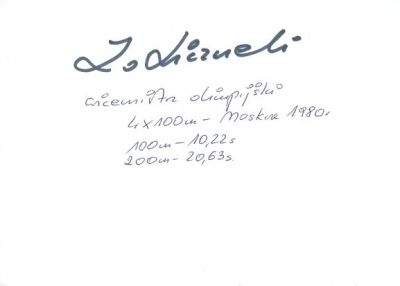 Z. Licznerski
wicemistrz olimpijski
4x100m - Moskwa 1980r.
100m - 10,22s
200m - 20,63s.